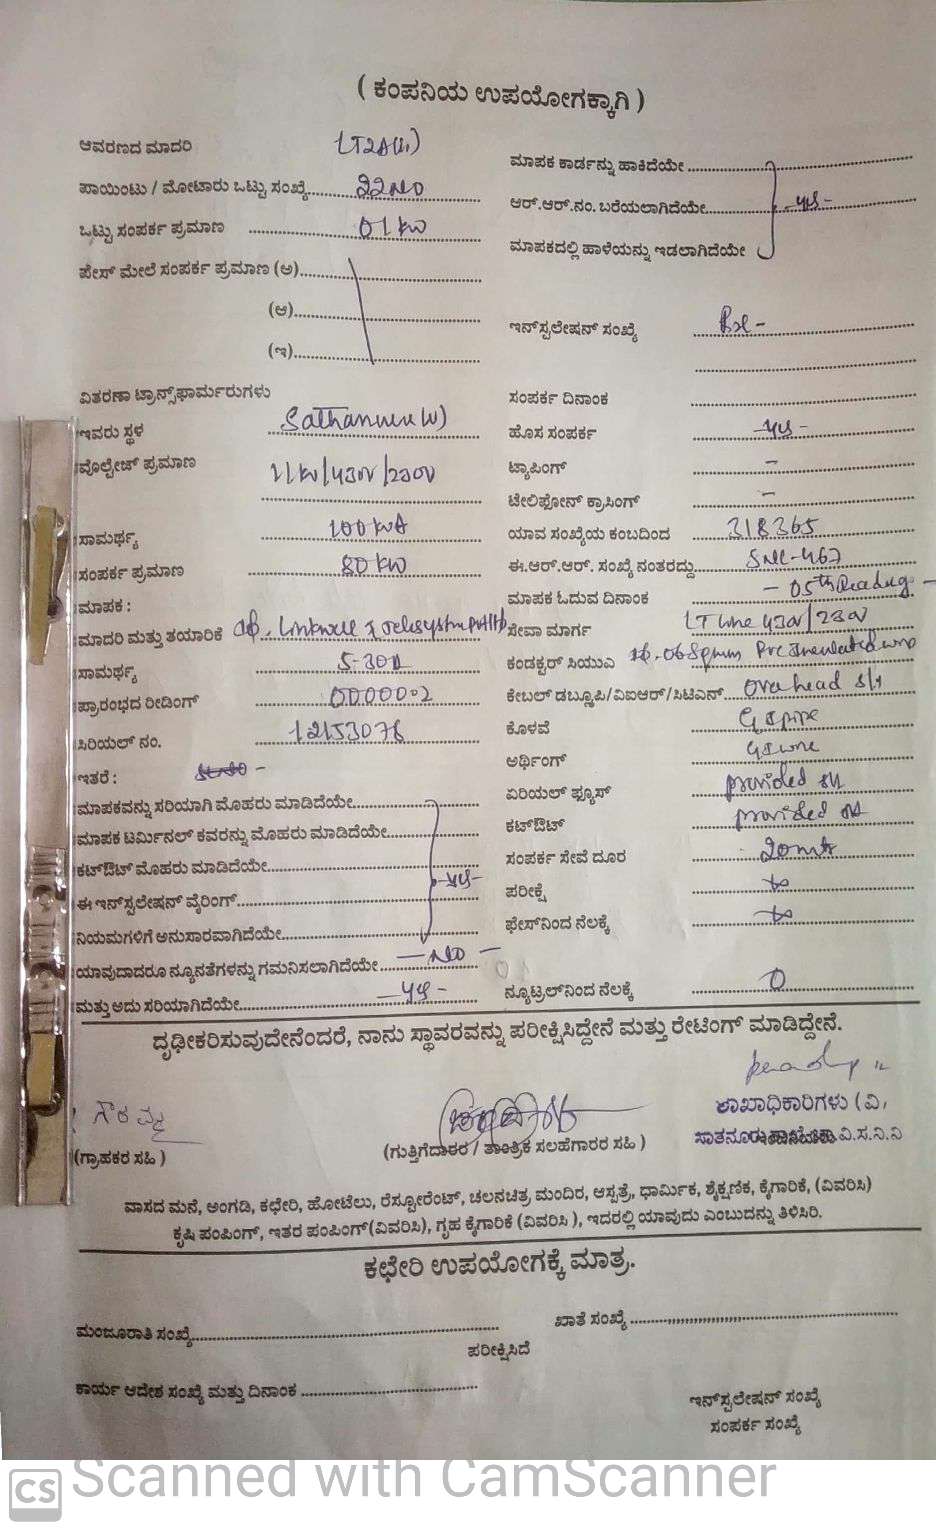 ( ಕಂಪನಿಯ ಉಪಯೋಗಕ್ಕಾಗಿ )
ಆವರಣದ ಮಾದರಿ LT2A(ii)
ಪಾಯಿಂಟು / ಮೋಟಾರು ಒಟ್ಟು ಸಂಖ್ಯೆ
ಒಟ್ಟು ಸಂಪರ್ಕ ಪ್ರಮಾಣ 01 KW
ಪೇಸ್ ಮೇಲೆ ಸಂಪರ್ಕ ಪ್ರಮಾಣ (ಅ)
(ಆ)
(ಇ)
ವಿತರಣಾ ಟ್ರಾನ್ಸ್‌ಫಾರ್ಮರುಗಳು
ಇವರು ಸ್ಥಳ
ವೊಲ್ಟೇಜ್ ಪ್ರಮಾಣ 11KV/430V/230V
ಸಾಮರ್ಥ್ಯ 100 KVA
ಸಂಪರ್ಕ ಪ್ರಮಾಣ 80 KW
ಮಾಪಕ :
ಮಾದರಿ ಮತ್ತು ತಯಾರಿಕೆ
ಸಾಮರ್ಥ್ಯ 5-30A
ಪ್ರಾರಂಭದ ರೀಡಿಂಗ್ 000000.2
ಸಿರಿಯಲ್ ನಂ. 12153076
ಇತರೆ : -
ಮಾಪಕವನ್ನು ಸರಿಯಾಗಿ ಮೊಹರು ಮಾಡಿದೆಯೇ
ಮಾಪಕ ಟರ್ಮಿನಲ್ ಕವರನ್ನು ಮೊಹರು ಮಾಡಿದೆಯೇ
ಕಟ್‌ಔಟ್ ಮೊಹರು ಮಾಡಿದೆಯೇ
ಈ ಇನ್‌ಸ್ಟಲೇಷನ್ ವೈರಿಂಗ್ -yes-
ನಿಯಮಗಳಿಗೆ ಅನುಸಾರವಾಗಿದೆಯೇ
ಯಾವುದಾದರೂ ನ್ಯೂನತೆಗಳನ್ನು ಗಮನಿಸಲಾಗಿದೆಯೇ - NO -
ಮತ್ತು ಅದು ಸರಿಯಾಗಿದೆಯೇ - yes -
ಮಾಪಕ ಕಾರ್ಡನ್ನು ಹಾಕಿದೆಯೇ
ಆರ್.ಆರ್.ನಂ. ಬರೆಯಲಾಗಿದೆಯೇ -yes-
ಮಾಪಕದಲ್ಲಿ ಹಾಳೆಯನ್ನು ಇಡಲಾಗಿದೆಯೇ
ಇನ್‌ಸ್ಪಲೇಷನ್ ಸಂಖ್ಯೆ
ಸಂಪರ್ಕ ದಿನಾಂಕ
ಹೊಸ ಸಂಪರ್ಕ -yes-
ಟ್ಯಾಪಿಂಗ್ -
ಟೇಲಿಫೋನ್ ಕ್ರಾಸಿಂಗ್ -
ಯಾವ ಸಂಖ್ಯೆಯ ಕಂಬದಿಂದ 318365
ಈ.ಆರ್.ಆರ್. ಸಂಖ್ಯೆ ನಂತರದ್ದು
ಮಾಪಕ ಓದುವ ದಿನಾಂಕ - 05th Reading -
ಸೇವಾ ಮಾರ್ಗ LT line 430V/230V
ಕಂಡಕ್ಟರ್ ಸಿಯುಎ
ಕೇಬಲ್ ಡಬ್ಲೂಪಿ/ವಿಐಆರ್/ಸಿಟಿಎನ್ Overhead
ಕೊಳವೆ GI pipe
ಅರ್ಥಿಂಗ್ GI wire
ಏರಿಯಲ್ ಫ್ಯೂಸ್ provided
ಕಟ್‌ಔಟ್ provided
ಸಂಪರ್ಕ ಸೇವೆ ದೂರ 20 mtr
ಪರೀಕ್ಷೆ
ಫೇಸ್‌ನಿಂದ ನೆಲಕ್ಕೆ
ನ್ಯೂಟ್ರಲ್‌ನಿಂದ ನೆಲಕ್ಕೆ 0
ದೃಢೀಕರಿಸುವುದೇನೆಂದರೆ, ನಾನು ಸ್ಥಾವರವನ್ನು ಪರೀಕ್ಷಿಸಿದ್ದೇನೆ ಮತ್ತು ರೇಟಿಂಗ್ ಮಾಡಿದ್ದೇನೆ.
ಶಾಖಾಧಿಕಾರಿಗಳು (ವಿ,
ವಿ.ಸ.ನಿ.ನಿ
(ಗ್ರಾಹಕರ ಸಹಿ )
(ಗುತ್ತಿಗೆದಾರರ / ತಾಂತ್ರಿಕ ಸಲಹೆಗಾರರ ಸಹಿ )
ವಾಸದ ಮನೆ, ಅಂಗಡಿ, ಕಛೇರಿ, ಹೋಟೆಲು, ರೆಸ್ಟೋರೆಂಟ್, ಚಲನಚಿತ್ರ ಮಂದಿರ, ಆಸ್ಪತ್ರೆ, ಧಾರ್ಮಿಕ, ಶೈಕ್ಷಣಿಕ, ಕೈಗಾರಿಕೆ, (ವಿವರಿಸಿ)
ಕೃಷಿ ಪಂಪಿಂಗ್, ಇತರ ಪಂಪಿಂಗ್(ವಿವರಿಸಿ), ಗೃಹ ಕೈಗಾರಿಕೆ (ವಿವರಿಸಿ ), ಇದರಲ್ಲಿ ಯಾವುದು ಎಂಬುದನ್ನು ತಿಳಿಸಿರಿ.
ಕಛೇರಿ ಉಪಯೋಗಕ್ಕೆ ಮಾತ್ರ.
ಮಂಜೂರಾತಿ ಸಂಖ್ಯೆ
ಖಾತೆ ಸಂಖ್ಯೆ
ಪರೀಕ್ಷಿಸಿದೆ
ಕಾರ್ಯ ಆದೇಶ ಸಂಖ್ಯೆ ಮತ್ತು ದಿನಾಂಕ
ಇನ್‌ಸ್ಪಲೇಷನ್ ಸಂಖ್ಯೆ
ಸಂಪರ್ಕ ಸಂಖ್ಯೆ
CS Scanned with CamScanner